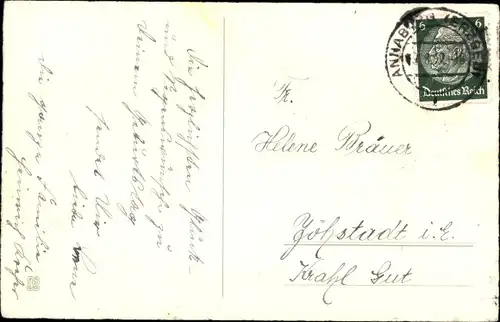 Die herzlichsten Glück-
und Segenswünsche zu
Deinem Geburtstag
sendet Dir
Die ganze Familie
6 6
Deutsches Reich
ANNABERG (ERZGEB)
Fr.
Helene Bräuer
Jöhstadt i. E.
Krahl Gut